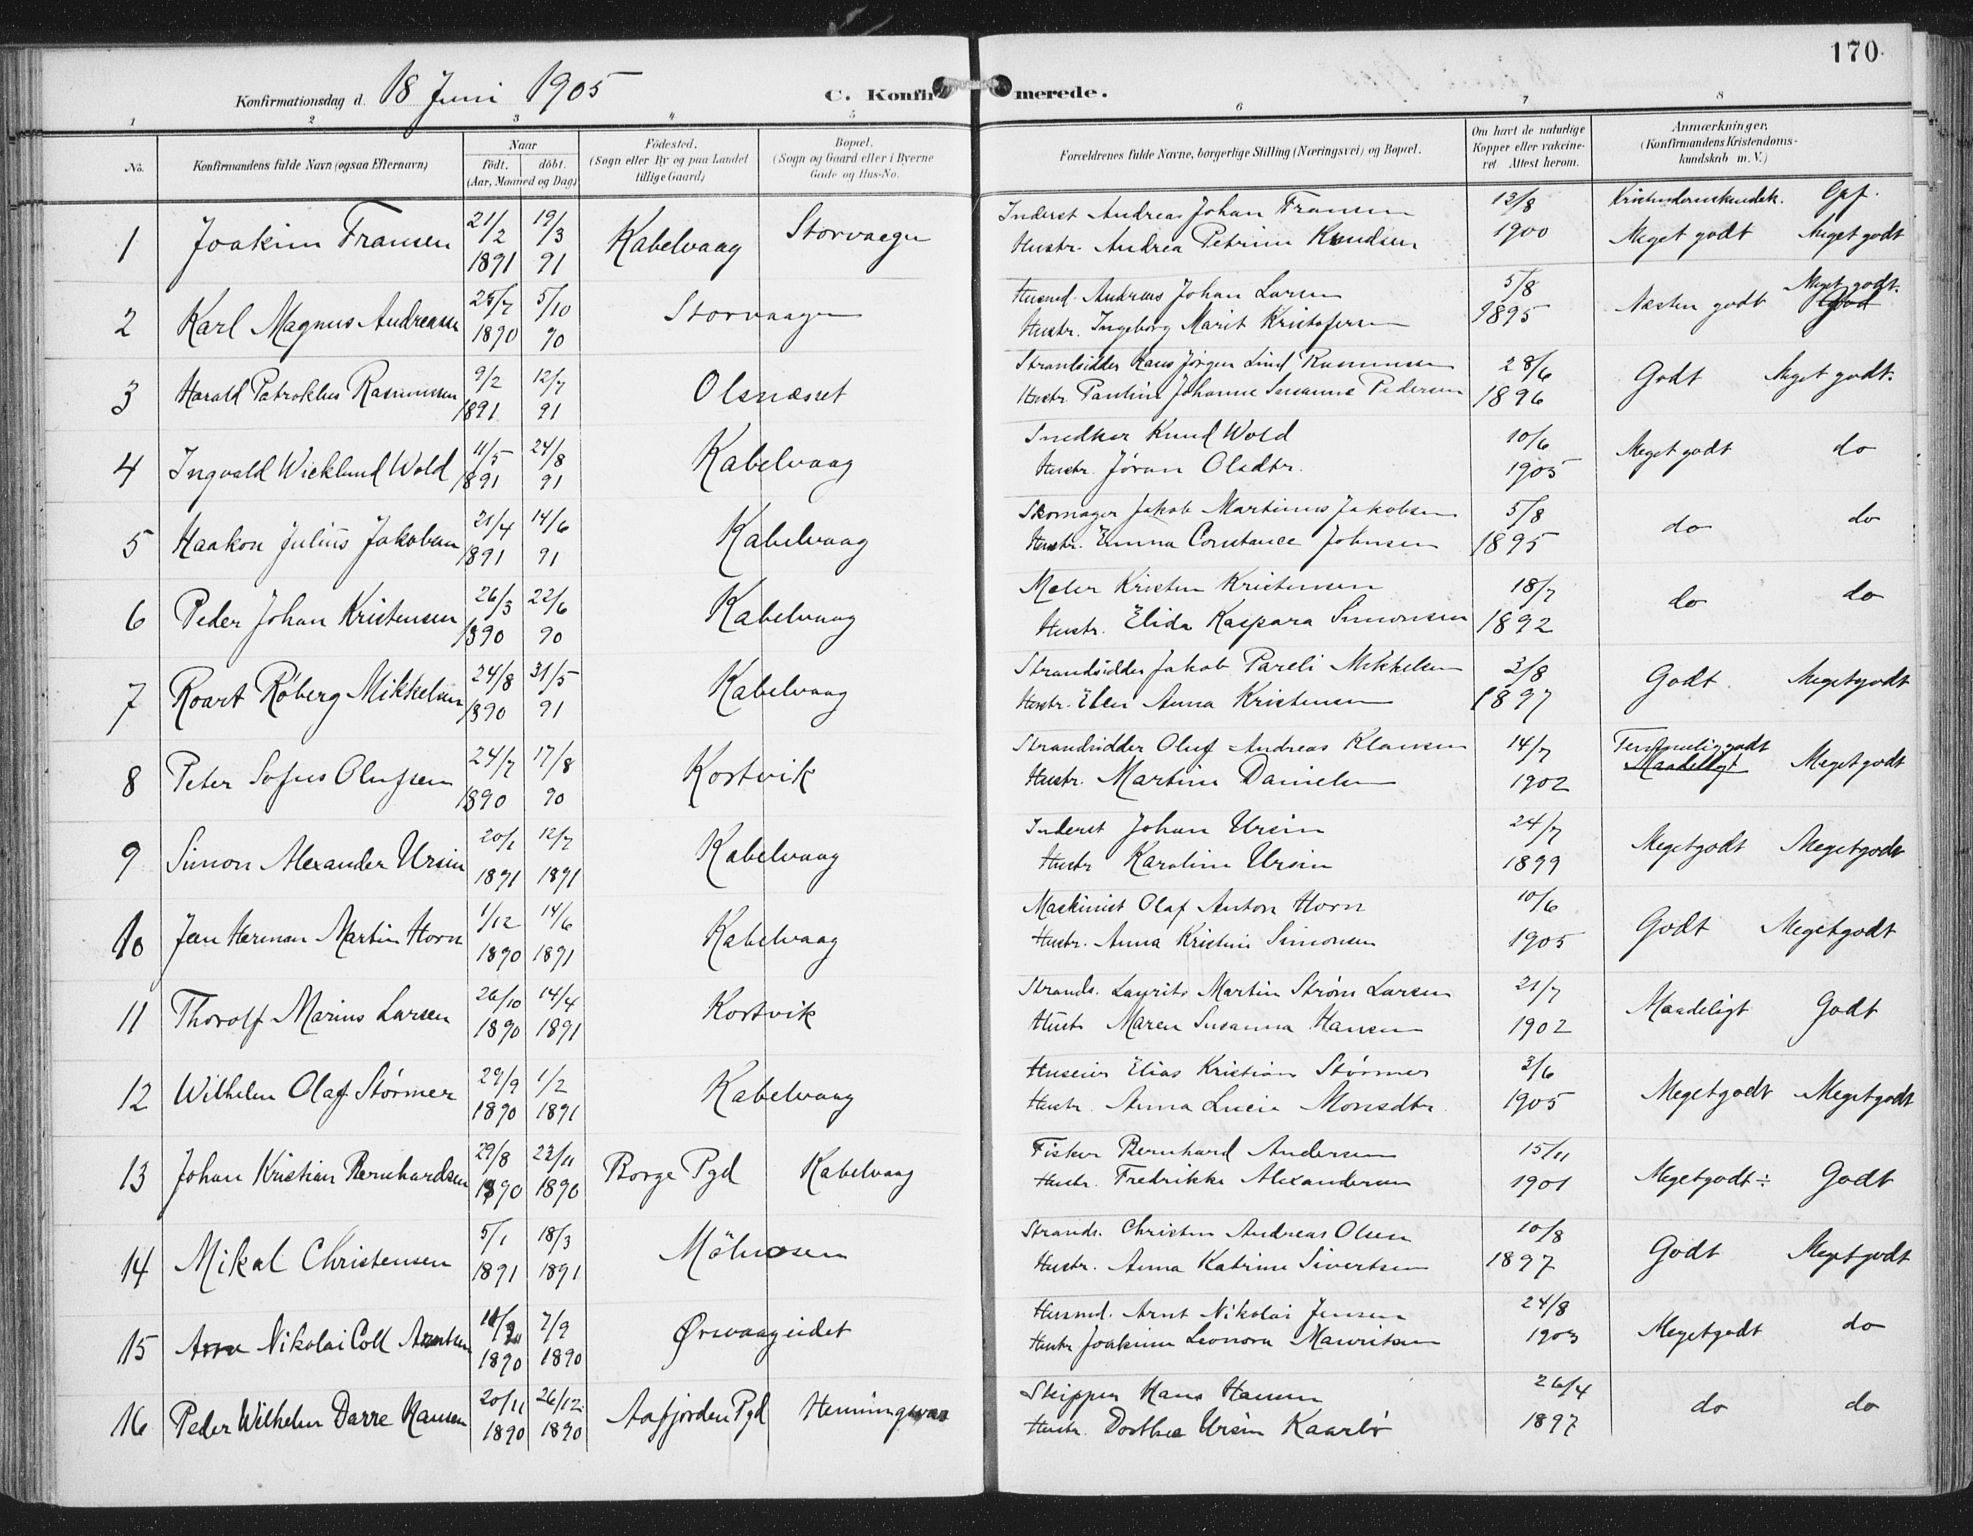 170
Konfirmationsdag d. 18 Juni 1905
C. Konfirmerede.
1 2 3 4 5 6 7 8
No.
Konfirmandens fulde Navn (ogsaa Efternavn)
Naar
födt. döbt.
(Aar, Maaned og Dag)
Födested.
(Sogn eller By og paa Landet
tillige Gaard)
Bopæl.
(Sogn og Gaard eller i Byerne
Gade og Hus-No.
Forældrenes fulde Navne, borgerlige Stilling (Næringsvei) og Bopæl.
Om havt de naturlige
Kopper eller vakcine-
ret Attest herom.
Anmærkninger.
(Konfirmandens Kristendoms-
kundskab m. V.)
1 Joakim Fransen 21/2 1891 19/3 91 Kabelvaag Storvaagen
Inderst Andreas Johan Fransen
Hustr. Andrea Petrine Knudsen
12/8 1900 Kristendomskundsk. Opf.
Meget godt Meget godt
2 Karl Magnus Andreasen 25/7 1890 5/10 90 Storvaagen
Husmd. Andreas Johan Larsen
Hustr. Ingeborg Marit Kristofersen
5/8 1895 Næsten godt Meget godt. God
3 Harald Patroklus Rasmussen 9/2 1891 12/7 91 Olsnæsset
Strandsidder Hans Jörgen Lind Rasmussen
Hustr. Pauline Johanne Susanna Pedersen
28/6 1896 Godt Meget godt.
4 Ingvald Wicklund Wold 11/5 1891 24/8 91 Kabelvaag
Snedker Knud Wold
Hustr. Jøran Olsdtr.
10/6 1905 Meget godt do
5 Haakon Julius Jakobsen 21/4 1891 14/6 91 Kabelvaag
Skomager Jakob Martinus Jakobsen
Hustr. Emma Constance Johnsen
5/8 1895 do do
6 Peder Johan Kristensen 26/3 1890 22/6 90 Kabelvaag
Maler Kristen Kristensen
Hustr. Elida Kaspara Simonsen
18/7 1892 do do
7 Roart Røberg Mikkelsen 24/8 1890 31/5 91 Kabelvaag
Strandsidder Jakob Pareli Mikkelsen
Hustr. Elen Anna Kristensen
3/8 1897 Godt Megetgodt
8 Peter Sofus Olufsen 24/7 1890 17/8 90 Kortvik
Strandsidder Oluf Andreas Klausen
Hustr. Martine Danielsen
14/7 1902 Temmeliggodt Maadeligt Megetgodt
9 Simon Alexander Ursin 20/1 1891 12/7 1891 Kabelvaag
Inderst Johan Ursin
Hustr Karoline Ursin
24/7 1899 Megetgodt Megetgodt
10 Jen Herman Martin Horn 1/12 1890 14/6 1891 Kabelvaag
Maskinist Olaf Anton Horn
Hustr. Anna Kristine Simonsen
10/6 1905 Godt Megetgodt
11 Thorolf Marius Larsen 26/10 1890 14/4 1891 Kortvik
Strands. Laurits Martin Strøm Larsen
Hustr Maren Susanna Hansen
21/7 1902 Maadeligt Godt
12 Wilhelm Olaf Størmer 29/9 1890 1/2 1891 Kabelvaag
Huseier Elias Kristian Størmer
Hustr. Anna Lucie Monsdtr.
3/6 1905 Megetgodt Megetgodt
13 Johan Kristian Bernhardsen 29/8 1890 23/11 1890 Borge Pgd Kabelvaag
Fisker Bernhard Andersen
Hustr. Fredrikke Alexandersen
15/11 1901 Megetgodt÷ Godt
14 Mikal Christensen 5/1 1891 18/3 1891 Mølnosen
Strands. Christen Andreas Olsen
Hustr. Anna Katrine Sivertsen
10/8 1897 Godt Megetgodt
15 Nikolai Coll Arntsen 1890 7/9 1890 Ørsvaageidet
Husmd. Arnt Nikolai Jensen
Hustr Joakime Leonora Mauritsen
24/8 1903 Megetgodt do
16 Peder Wilhelm Darre Hansen 20/11 1890 26/12 1890 Aafjorden Pgd Henningsvær
Skipper Hans Hansen
Hustr. Dorthea Ursin Kaarbø
26/4 1897 do do